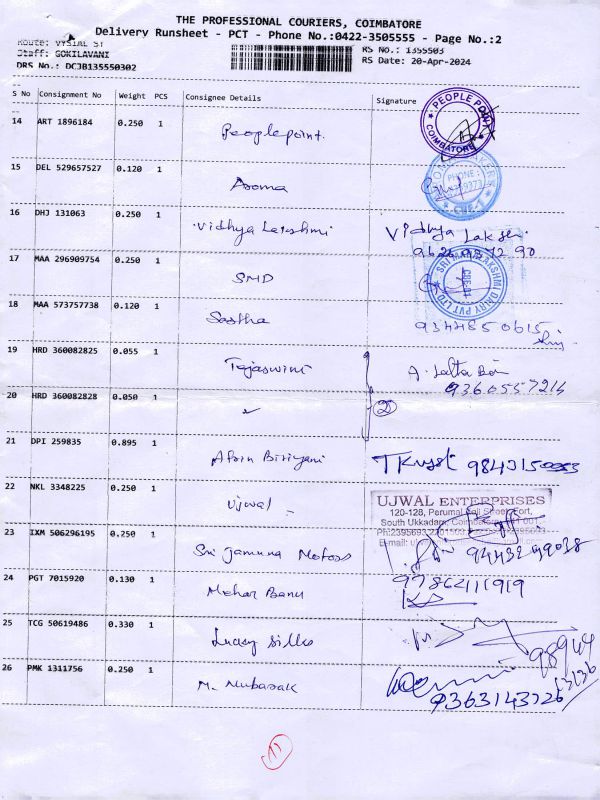 THE PROFESSIONAL COURIERS, COIMBATORE
Delivery Runsheet - PCT - Phone No.:0422-3505555 - Page No.:2
Route: VYSIAL ST
Staff: GOKILAVANI
RS No.: 1355503
DRS No.: DCJB135550302
RS Date: 20-Apr-2024
S No Consignment No Weight PCS Consignee Details Signature
14 ART 1896184 0.250 1 Peoplepoint.
PEOPLE POINT
COIMBATORE
15 DEL 529657527 0.120 1 Aroma
PHONE:
CBE-1
16 DHJ 131063 0.250 1 Vidhya Lakshmi Vidhya Lakshmi
17 MAA 296909754 0.250 1 SMD
SRI MAHALAKSHMI DAIRY PVT LTD
18 MAA 573757738 0.120 1 Sastha 9344850615
19 HRD 360082825 0.055 1 Tejaswini A. Lalta
9360557214
20 HRD 360082828 0.050 1 ②
21 DPI 259835 0.895 1 Afrin Biriyani
22 NKL 3348225 0.250 1 Ujwal
UJWAL ENTERPRISES
120-128, Perumal Koil Street, Fort,
South Ukkadam, Coimbatore
Ph:2395693
E-mail:
23 IXM 506296195 0.250 1 Sri Jamuna Motors
24 PGT 7015920 0.130 1 Mehar Banu 9786411919
25 TCG 50619486 0.330 1 Lucky Silks
26 PMK 1311756 0.250 1 M. Mubarak
9363143726
11